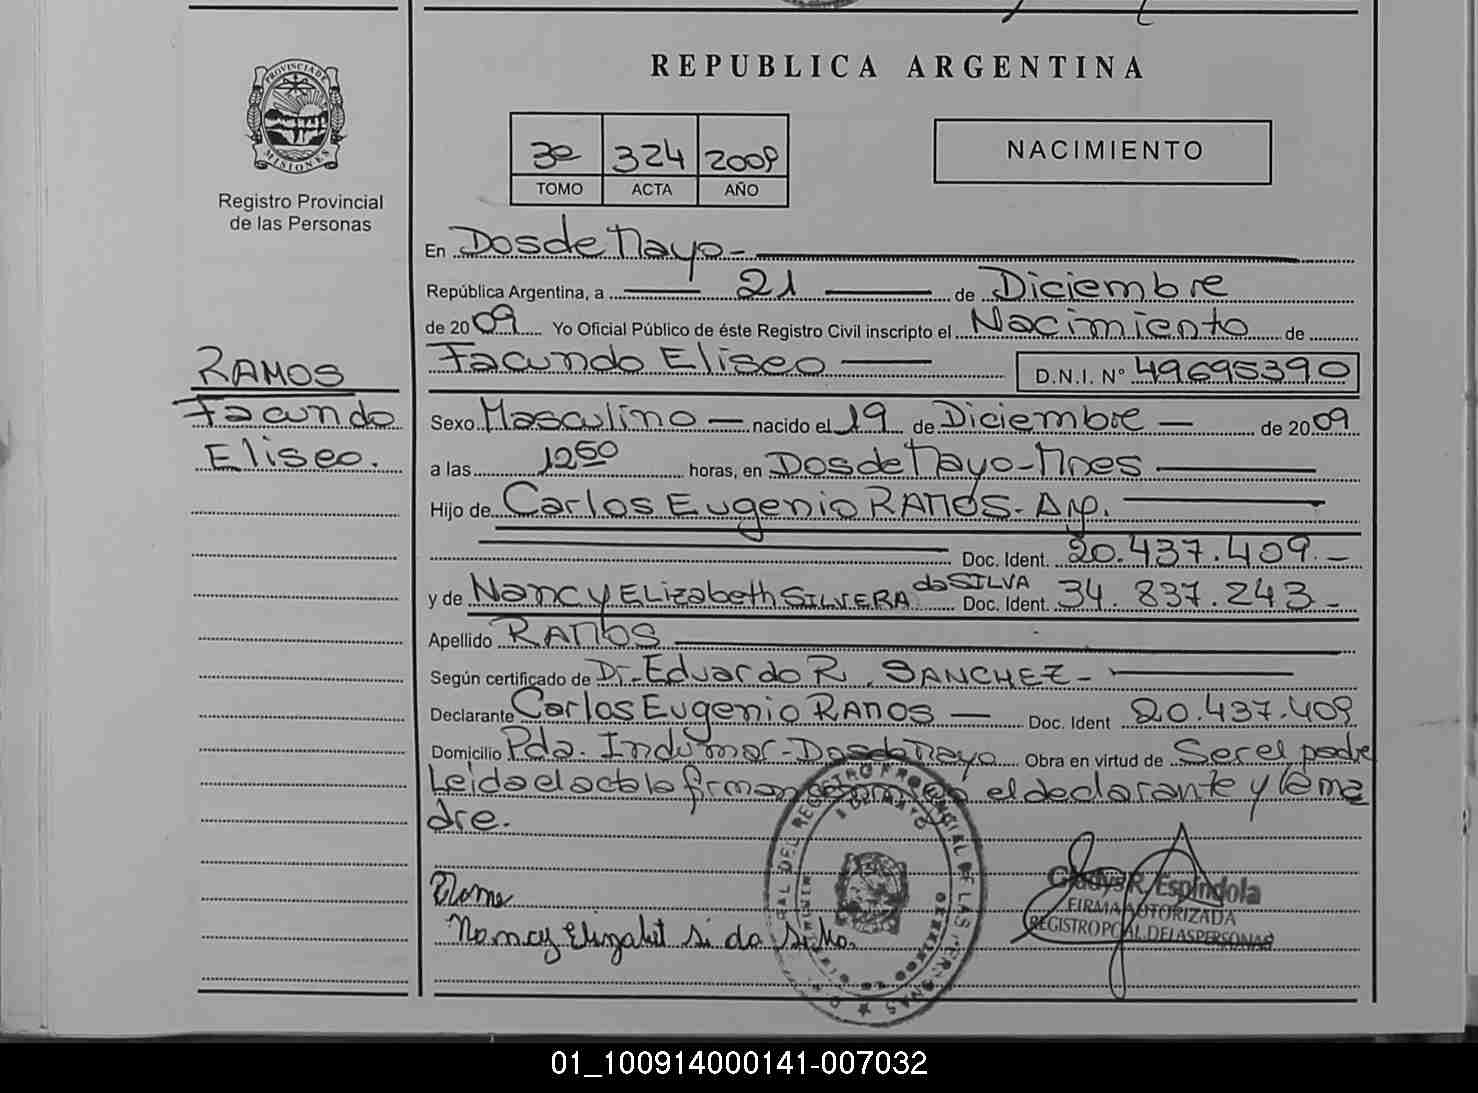 REPUBLICA ARGENTINA
PROVINCIA DE
MISIONES
Registro Provincial
de las Personas
3e 324 2009
TOMO ACTA AÑO
NACIMIENTO
En Dos de Mayo-
República Argentina, a 21 de Diciembre
de 2009 Yo Oficial Público de éste Registro Civil inscripto el Nacimiento de
Facundo Eliseo D.N.I. N° 49695390
RAMOS
Facundo
Eliseo.
Sexo Masculino nacido el 19 de Diciembre de 2009
a las 1250 horas, en Dos de Mayo-Mnes
Hijo de Carlos Eugenio RAMOS- Arg.
Doc. Ident. 20.437.409.-
y de Nancy Elizabeth SILVERA da SILVA Doc. Ident. 34.837.243-
Apellido RAMOS
Según certificado de Dr. Eduardo R. SANCHEZ-
Declarante Carlos Eugenio RAMOS Doc. Ident 20.437.409
Domicilio Pda. Indumar-Dos de Mayo Obra en virtud de Ser el padre
Leida el acta la firman el declarante y la ma
dre.
Nancy Elizabet si da silva.
Gladys R. Espíndola
FIRMA AUTORIZADA
REGISTRO PCIAL. DE LAS PERSONAS
01_100914000141-007032